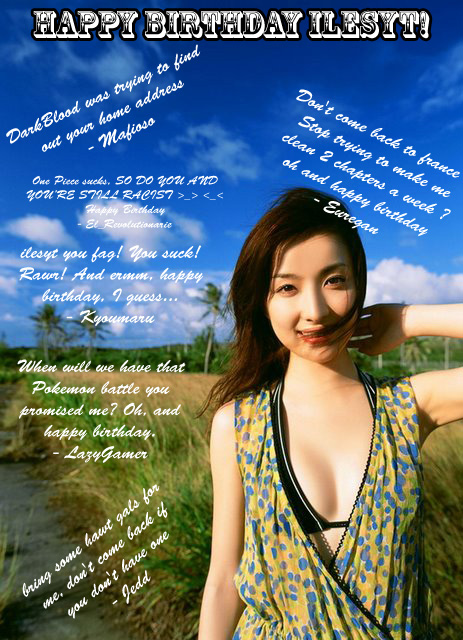 HAPPY BIRTHDAY ILESYT!
DarkBlood was trying to find
out your home address
- Mafioso
Don't come back to france
Stop trying to make me
clean 2 chapters a week ?
oh and happy birthday
- Euregan
One Piece sucks, SO DO YOU AND
YOU'RE STILL RACIST >_> <_<
Happy Birthday
- El_Revolutionarie
ilesyt you fag! You suck!
Rawr! And ermm, happy
birthday, I guess...
- Kyoumaru
When will we have that
Pokemon battle you
promised me? Oh, and
happy birthday.
- LazyGamer
bring some hawt gals for
me, don't come back if
you don't have one
- Jedd